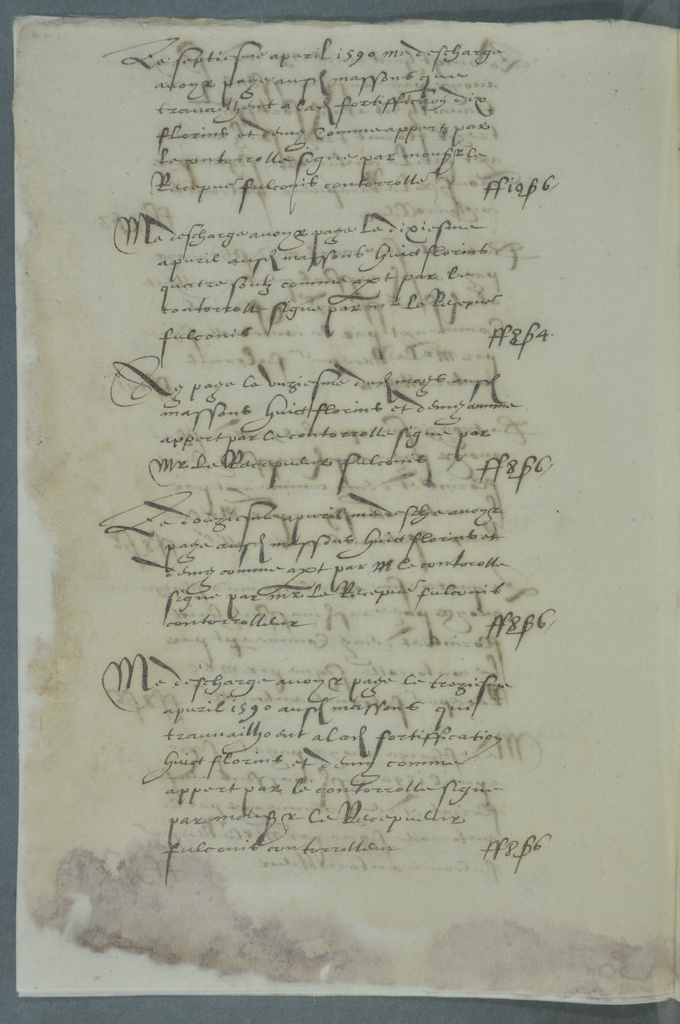 Le septiesme apvril 1590 me descharge
avoyr page ausd massons que
travailhent a lad fortiffication dix
florins et demy Comme appert par
le contorrolle signe par monsr le
Recepveur fulconis contorrolle ff 10 ß 6
Me descharge avoyr page Le dixiesme
apvril ausd massons huict florins
quatre soulz comme apt par le
contorrolle signe par mr Le Recepveur
fulconis ff 8 ß 4
Ay page le unziesme dud moys ausd
massons huict florins et demy comme
appert par le contorrolle signe par
Mr Le Recepveur fulconis ff 8 ß 6
Le douziesme apvril me desche avoyr
page ausd massons huict florins et
demy comme apt par le contorolle
signe par mr Le Recepveur fulconis
contorrolleur ff 8 ß 6
Me descharge avoyr page le treziesme
apvril 1590 ausd massons qui
travailhoent a lad fortiffication
huict florins et demy comme
appert par le contorrolle signe
par monsr Le Recepveur
fulconis contorrolleur ff 8 ß 6